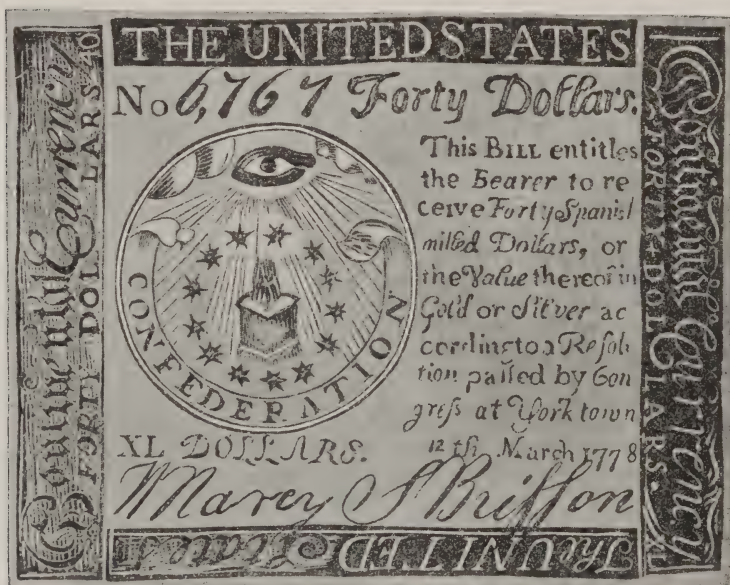 THE UNITED STATES
No 6,767 Forty Dollars.
This BILL entitles
the Bearer to re
ceive Forty Spanish
milled Dollars, or
the Value thereof in
Gold or Silver ac
cording to a Resolu
tion passed by Con
gress at York town
12th March 1778
CONFEDERATION
XL DOLLARS.
W Marcy S Brisson
Continental Currency
FORTY DOLLARS 40
Continental Currency
FORTY DOLLARS. XL
The UNITED States